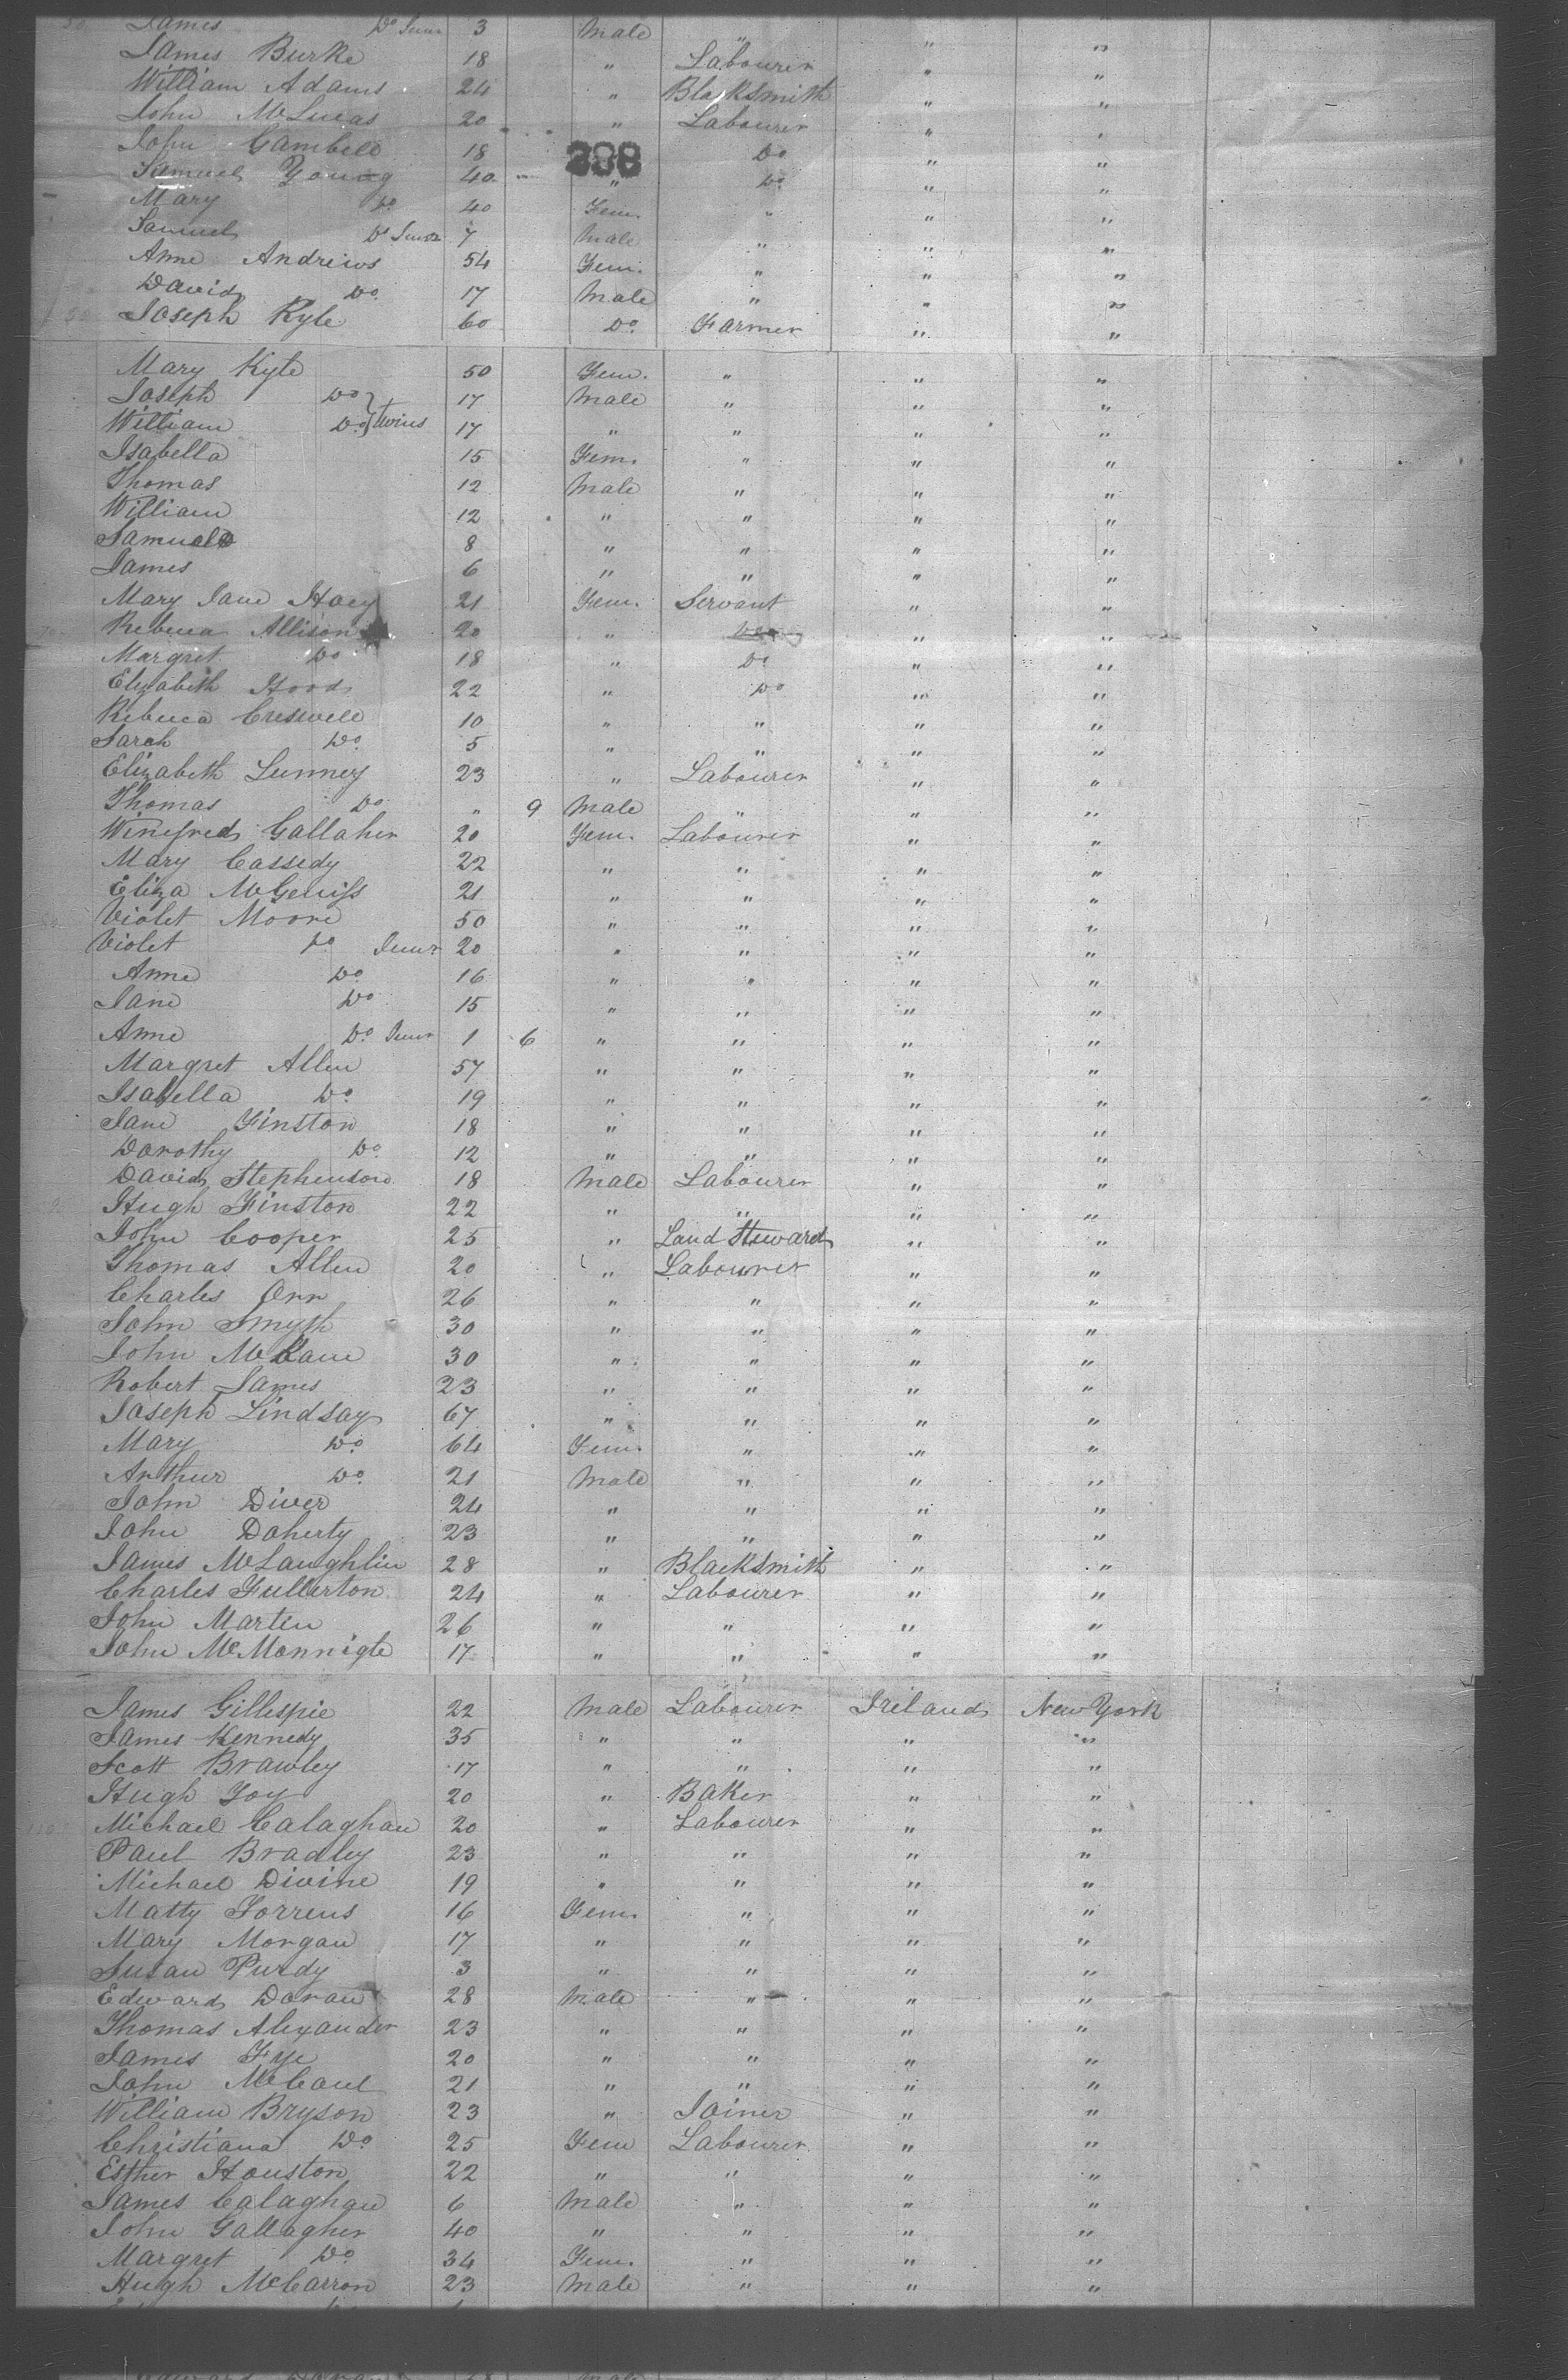 James Do Junr 3 Male " " "
James Burke 18 " Labourer " "
William Adams 24 " Blacksmith " "
John McLucas 20 " Labourer " "
John Gambell 18 " Do " "
288
Samuel Young 40 " Do " "
Mary Do 40 Fem. " " "
Samuel Do Junr 7 Male " " "
Anne Andrews 54 Fem. " " "
David Do 17 Male " " "
Joseph Kyle 60 Do. Farmer " "
Mary Kyle 50 Fem. " " "
Joseph Do } 17 Male " " "
William Do } twins 17 " " " "
Isabella 15 Fem. " " "
Thomas 12 Male " " "
William 12 " " " "
Samuel 8 " " " "
James 6 " " " "
Mary Jane Hoey 21 Fem. Servant " "
Rebeca Allison 20 " Do " "
Margret Do 18 " Do " "
Elizabeth Hood 22 " Do " "
Rebeca Creswell 10 " " " "
Sarah Do. 5 " " " "
Elizabeth Lunney 23 " Labourer " "
Thomas Do " 9 Male " " "
Winefred Gallaher 20 Fem. Labourer " "
Mary Cassedy 22 " " " "
Eliza McGeniss 21 " " " "
Violet Moore 50 " " " "
Violet Do Junr 20 " " " "
Anne Do. 16 " " " "
Jane Do 15 " " " "
Anne Do. Junr 1 6 " " " "
Margret Allen 57 " " " "
Isabella Do. 19 " " " "
Jane Finston 18 " " " "
Dorothy Do. 12 " " " "
David Stephenson 18 Male Labourer " "
Hugh Finston 22 " " " "
John Cooper 25 " Land Steward " "
Thomas Allen 20 " Labourer " "
Charles Orr 26 " " " "
John Smyth 30 " " " "
John McKane 30 " " " "
Robert James 23 " " " "
Joseph Lindsay 67 " " " "
Mary Do. 64 Fem. " " "
Arthur Do. 21 Male " " "
John Diver 24 " " " "
John Doherty 23 " " " "
James McLaughlin 28 " Blacksmith " "
Charles Fullerton 24 " Labourer " "
John Martin 26 " " " "
John McMonnigle 17 " " " "
James Gillespie 22 Male Labourer Ireland New York
James Kennedy 35 " " " "
Scott Brawley 17 " " " "
Hugh Foy 20 " Baker " "
Michael Calaghan 20 " Labourer " "
Paul Bradley 23 " " " "
Michael Divine 19 " " " "
Matty Torrens 16 Fem. " " "
Mary Morgan 17 " " " "
Susan Purdy 3 " " " "
Edward Doran 28 Male " " "
Thomas Alexander 23 " " " "
James Fye 20 " " " "
John McCaul 21 " " " "
William Bryson 23 " Joiner " "
Christiana Do. 25 Fem Labourer " "
Esther Houston 22 " " " "
James Calaghan 6 Male " " "
John Gallagher 40 " " " "
Margret Do. 34 Fem. " " "
Hugh McCarron 23 Male " " "